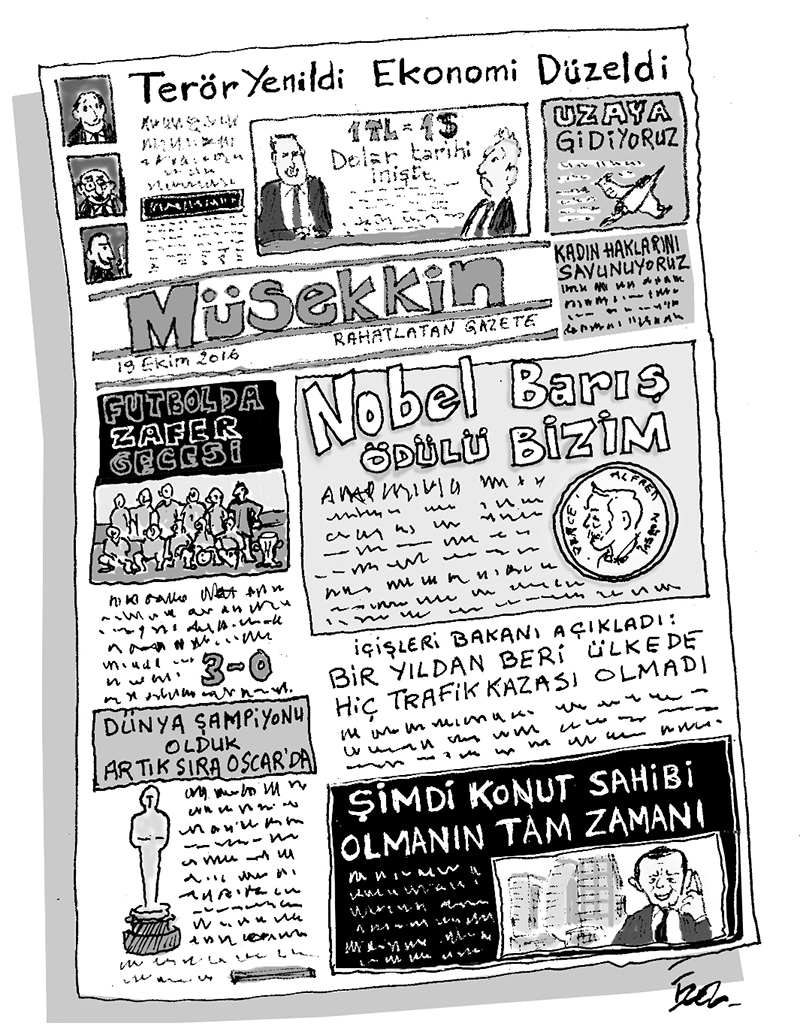 Terör Yenildi Ekonomi Düzeldi
1TL = 1$
Dolar tarihi
inişte
UZAYA
GİDİYORUZ
KADIN HAKLARINI
SAVUNUYORUZ
Müsekkin
RAHATLATAN GAZETE
19 Ekim 2016
FUTBOLDA
ZAFER
GECESİ
3-0
DÜNYA ŞAMPİYONU
OLDUK
ARTIK SIRA OSCAR'DA
Nobel Barış
ÖDÜLÜ BİZİM
ALFRED
İÇİŞLERİ BAKANI AÇIKLADI:
BİR YILDAN BERİ ÜLKEDE
HİÇ TRAFİK KAZASI OLMADI
ŞİMDİ KONUT SAHİBİ
OLMANIN TAM ZAMANI